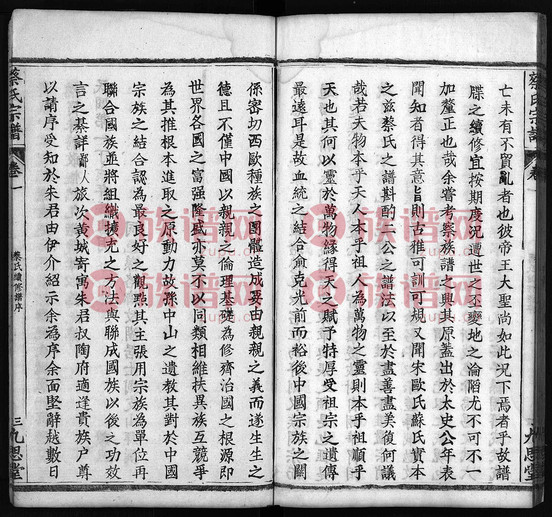 亡未有不買亂者也彼帝王大聖尚如此况下焉者乎故譜
牒之續修宜按期慶况遭世之丕變地之淪陷尤不可不一
加釐正也哉余嘗考蔡族譜之與其原蓋出於太史公年表
聞知者得其意旨則古雅可訓可規又聞宋歐氏蘇氏實本
之兹蔡氏之譜斟酌二公之譜法以至於盡善盡美復何議
哉若夫物本乎天人本乎祖人為萬物之靈則本乎祖順乎
天也其何以靈於萬物緣得天之賦予特厚受祖宗之遺傳
最遠耳是故血統之結合愈克光前而裕後中國宗族之關
係密切西歐種族之團體造成要由親親之義而遂生生之
德且不僅中國以親親之倫理基礎為修齊治國之根源即
世界各國之富强隆盛亦莫不以同類相維扶異族互競爭
為其推根本進取之原動力故孫中山之遺教其對於中國
宗族之結合認為最良好之觀點其主張用宗族為單位再
聯合國族並將組織擴尤之方法與聯成國族以後之功效
言之綦詳鄙人旅次黄城寄寓朱君叔陶府適逢貴族户尊
以請序受知於朱君由伊介紹示余為序余面堅辭越數日
蔡氏宗譜
卷一
蔡氏續修譜序
三
九思堂
族谱网